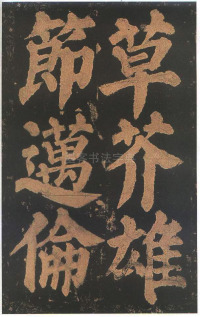 草芥雄
節邁倫